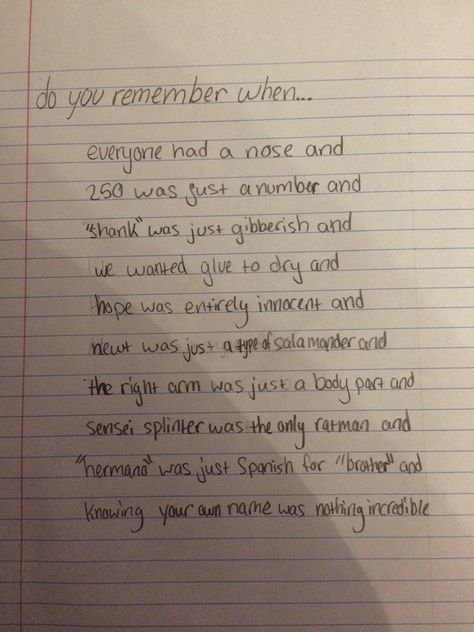 do you remember when...
everyone had a nose and
250 was just a number and
"shank" was just gibberish and
we wanted glue to dry and
hope was entirely innocent and
newt was just a type of salamander and
the right arm was just a body part and
sensei splinter was the only ratman and
"hermano" was just Spanish for "brother" and
knowing your own name was nothing incredible